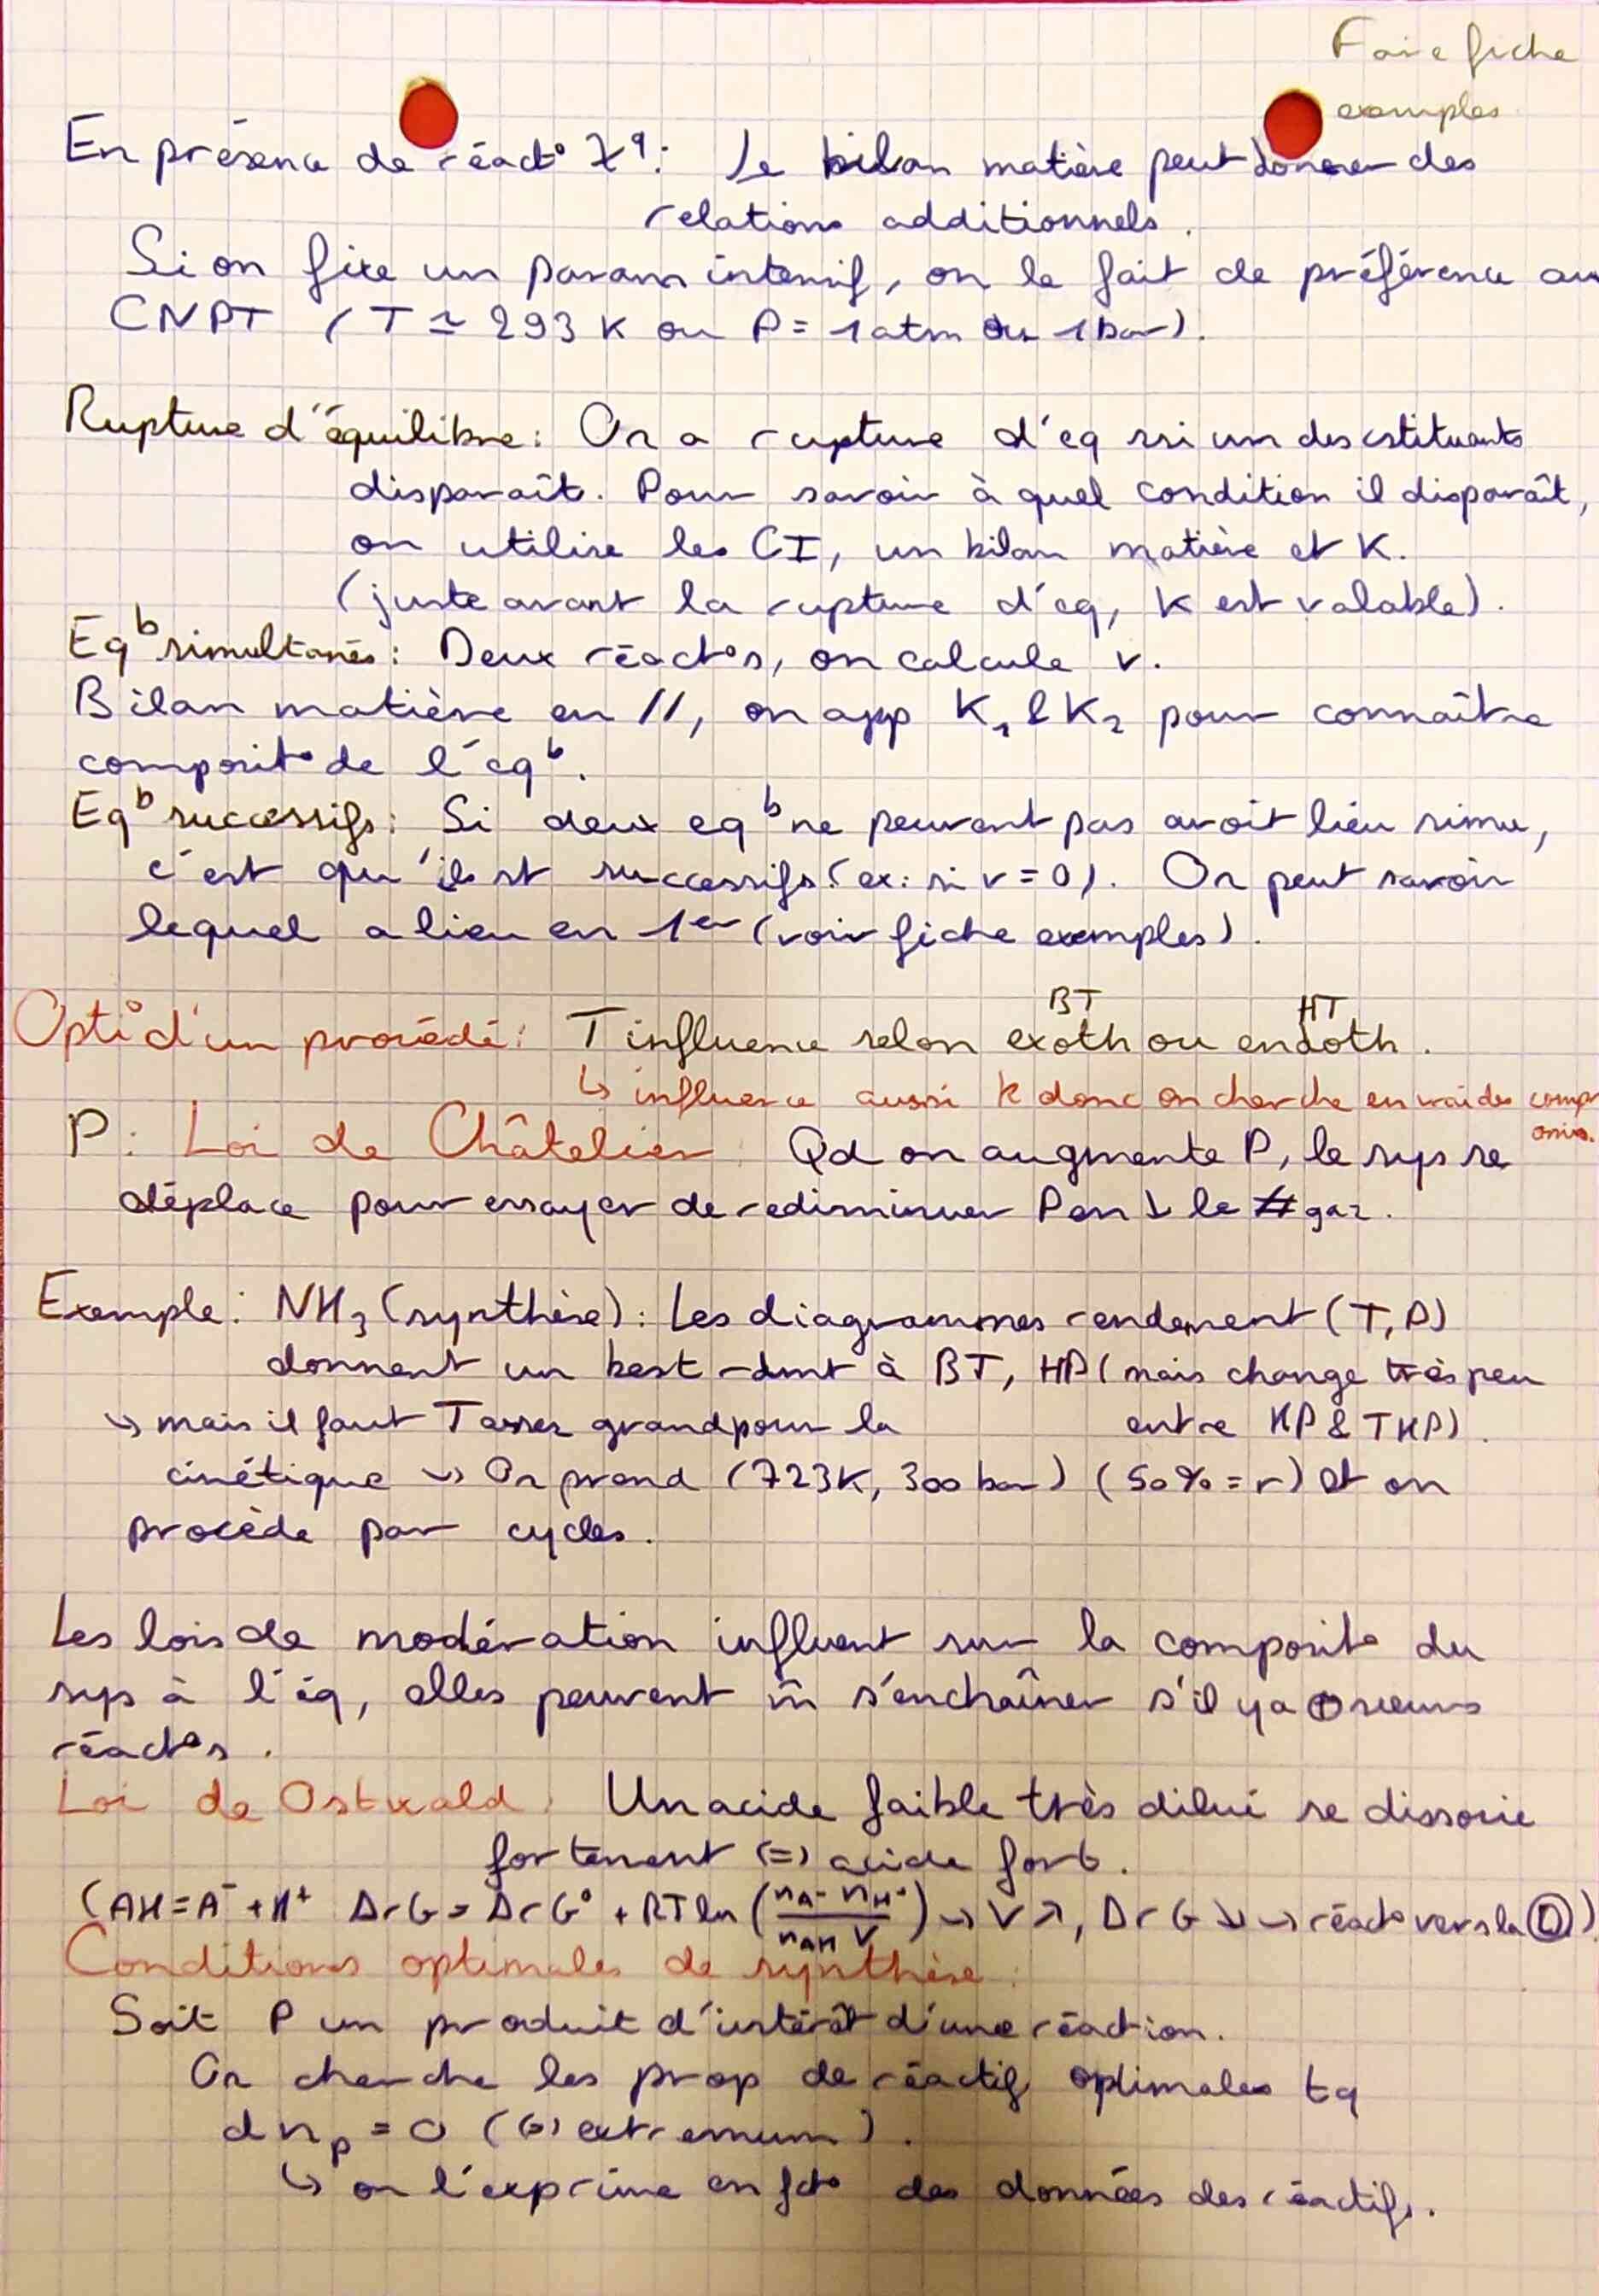 Faire fiche
exemples
En présence de réact° χq : Le bilan matière peut donner des
relations additionnels.
Si on fixe un param intensif, on le fait de préférence aux
CNPT (T ≃ 293 K ou P = 1 atm ou 1 bar).
Rupture d'équilibre : On a rupture d'eq ssi un des cstituants
disparaît. Pour savoir à quel condition il disparaît,
on utilise les CI, un bilan matière et K.
(juste avant la rupture d'eq, K est valable).
Eqb simultanés : Deux réact°s, on calcule v.
Bilan matière en //, on app K1 & K2 pour connaître
composit° de l'eqb.
Eqb successifs : Si deux eqb ne peuvent pas avoir lieu simu,
c'est qu'ils st successifs (ex : si v = 0). On peut savoir
lequel a lieu en 1er (voir fiche exemples).
BT HT
Opti° d'un procédé : T influence selon exoth ou endoth.
↳ influence aussi k donc on cherche en vrai des compr
omis.
P : Loi de Châtelier : Qd on augmente P, le sys se
déplace pour essayer de rediminuer P en ↓ le # gaz.
Exemple : NH3 (synthèse) : Les diagrammes rendement (T, P)
donnent un best rdmt à BT, HP (mais change très peu
↳ mais il faut T assez grand pour la entre HP & THP).
cinétique ↳ On prend (723K, 300 bar) (50% = r) et on
procède par cycles.
Les lois de modération influent sur la composit° du
sys à l'éq, elles peuvent m̂ s'enchaîner s'il y a ⊕sieurs
réact°s.
Loi de Ostwald : Un acide faible très dilué se dissocie
fortement (=) acide fort.
(AH = A⁻ + H⁺ ΔrG = ΔrG° + RT ln (nA⁻ nH⁺ / nAH V) ↳ V ↗, ΔrG ↘ ↳ réact° vers la Ⓓ)
Conditions optimales de synthèse :
Soit P un produit d'intérêt d'une réaction.
On cherche les prop de réactifs optimales tq
dnp = 0 (⇔ extremum).
↳ on l'exprime en fct° des données des réactifs.